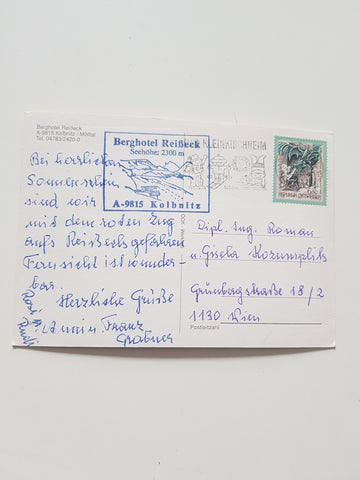 Berghotel Reißeck
A-9815 Kolbnitz / Mölltal
Tel. 04783/2420-0
Berghotel Reißeck
Seehöhe: 2300 m
A-9815 Kolbnitz
KLEINKIRCHHEIM
Bei herrlichem
Sonnenschein
sind wir
mit dem roten Eng
aufs Reißeck gefahren
Fernsicht ist wunder
bar.
Herzliche Grüße
Franz
Grabner
Rudi
Dipl. Ing. Roman
u. Gisela
Grünbergstraße 18/2
1130 Wien
Postleitzahl